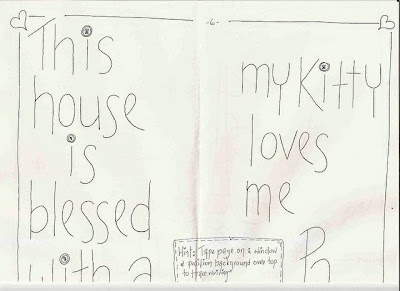 -6-
This
house
is
blessed
with a
my Kitty
loves
me
Hint: Tape page on a window
& position background over top
to trace writing